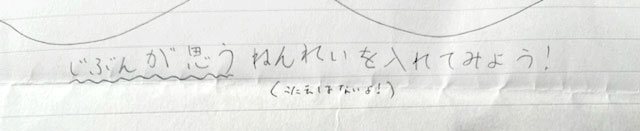 じぶんが思うねんれいを入れてみよう!
(こたえはないよ!)